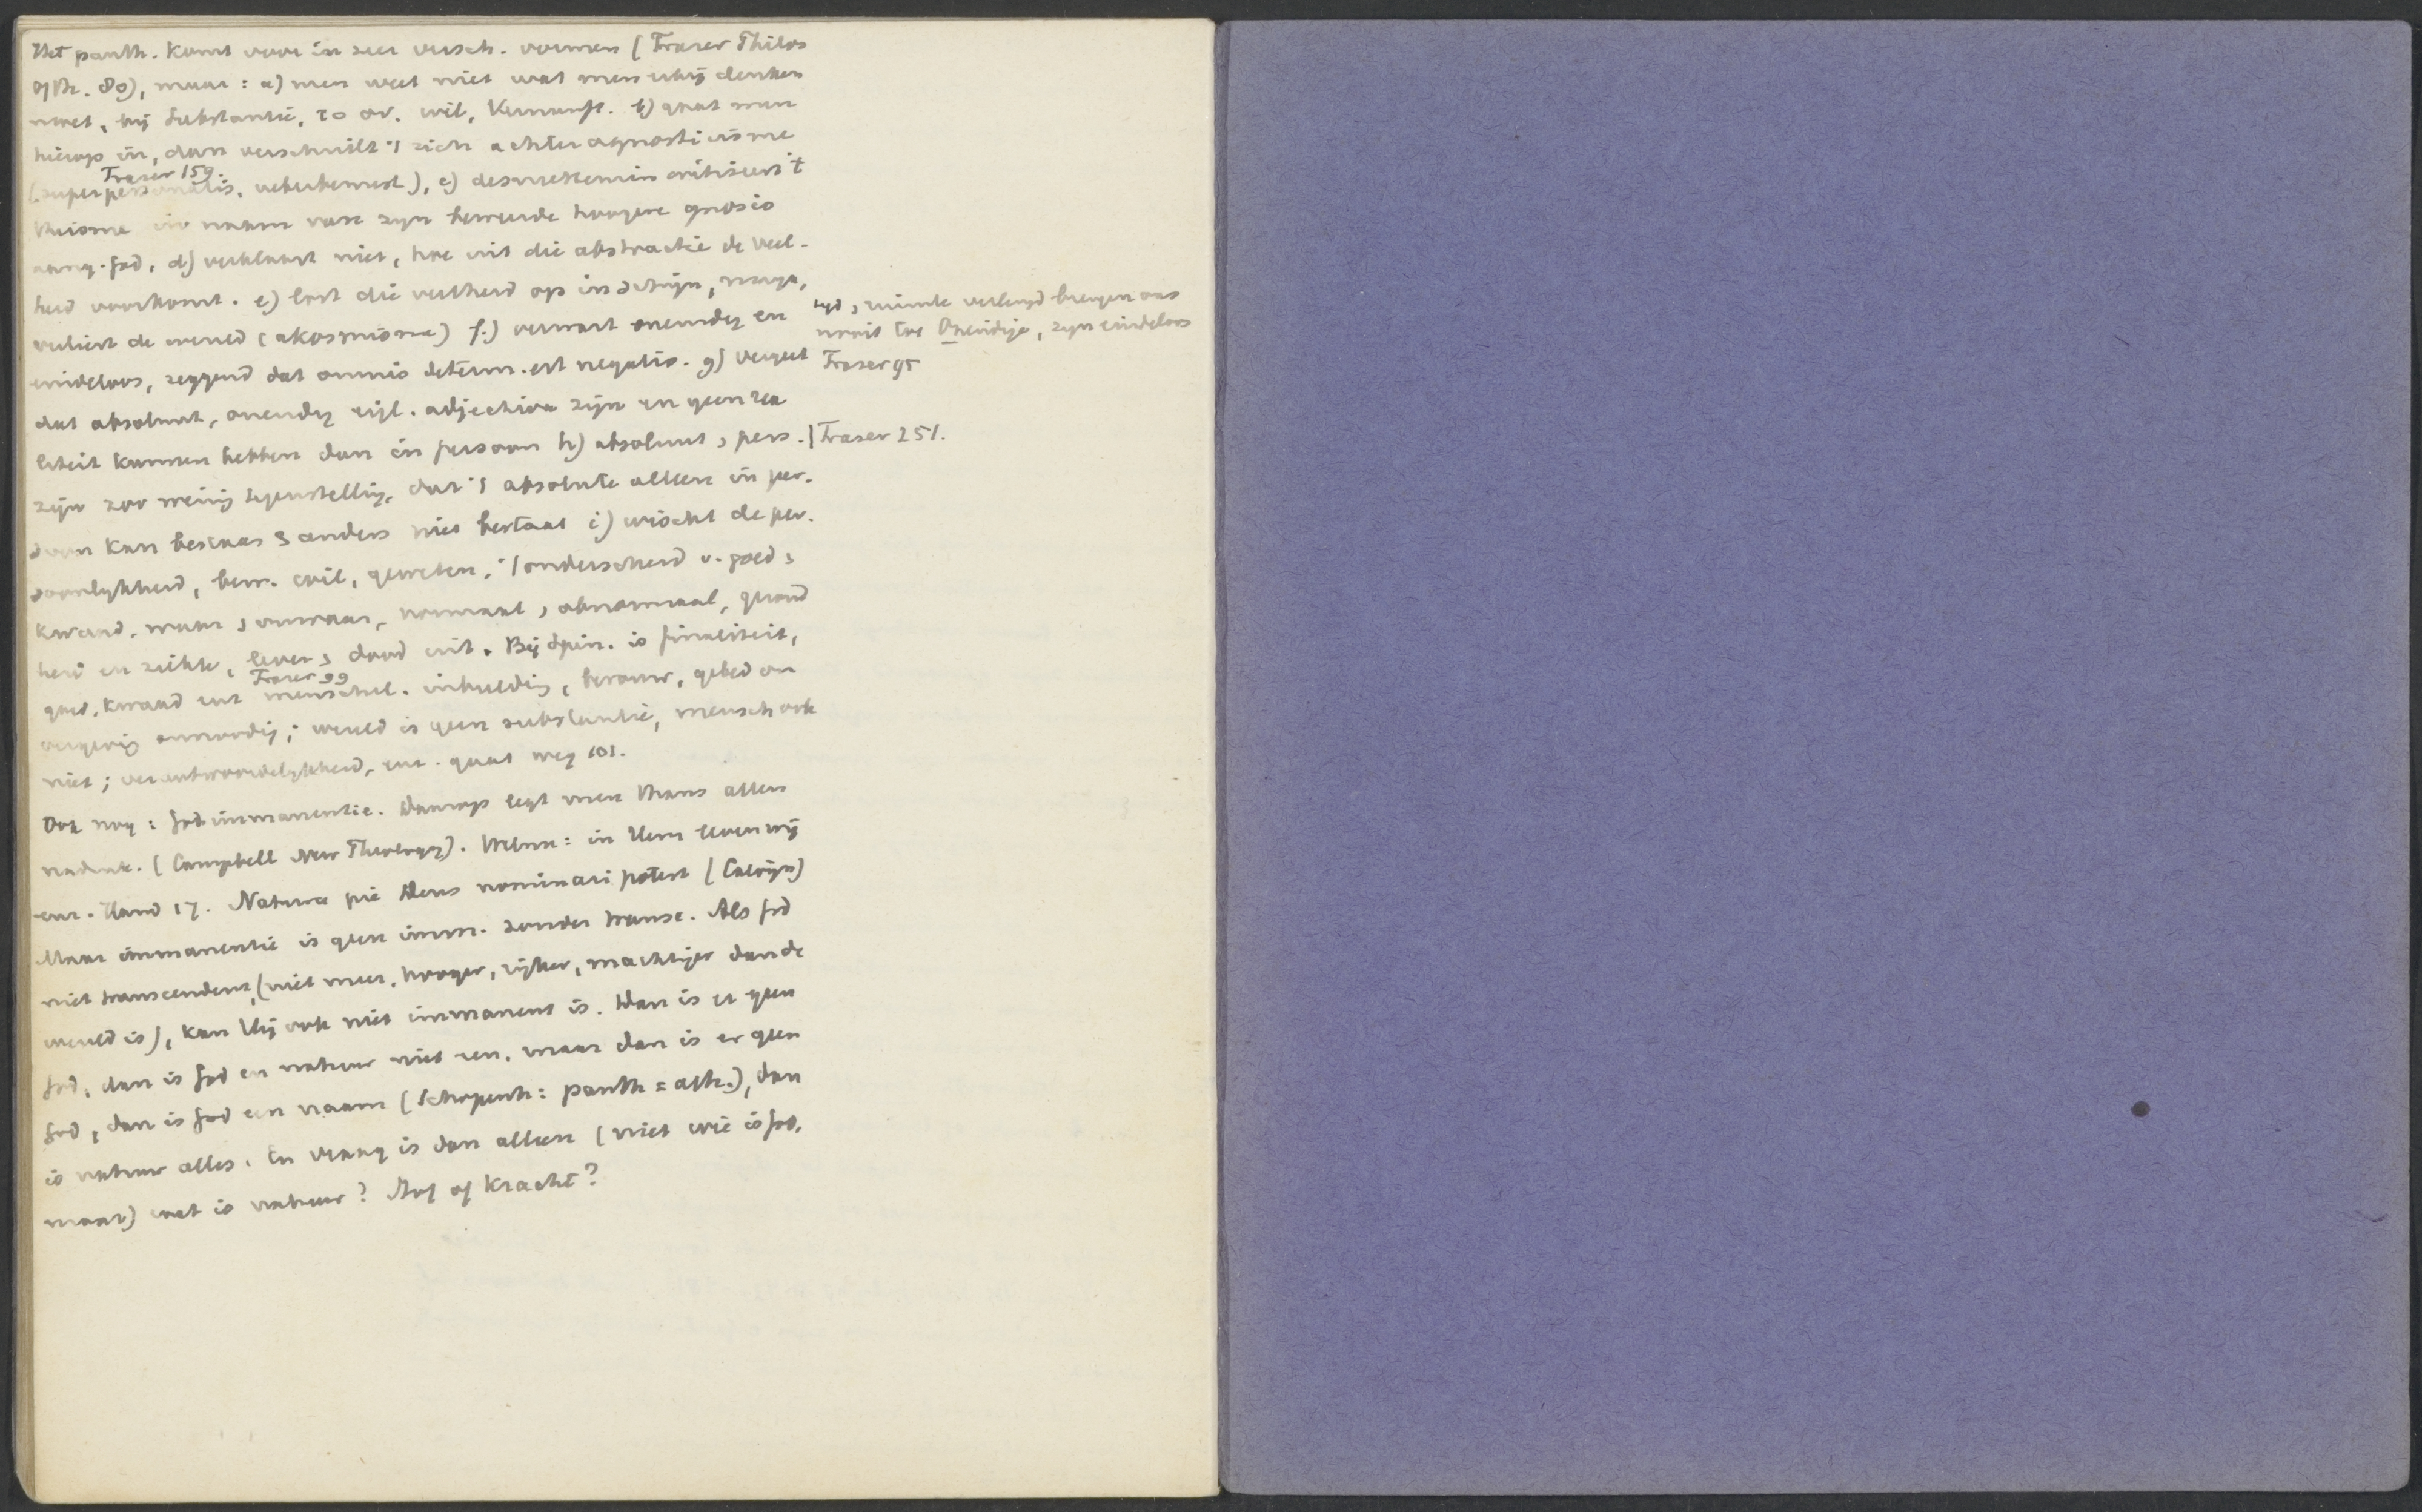 Het panth. komt voor in zeer versch. vormen (Fraser Philos
of Th. 80), maar: a) men weet niet wat men erbij denken
moet, bij substantie, το ον, wil, Vernunft. b) gaat men
hierop in, dan verschuilt 't zich achter agnosticisme
Fraser 159.
(superpersonalis, unbewusst), c) desniettemin critiseert 't
theisme in naam van zijn beweerde hoogere gnosis
aang. God, d) verklaart niet, hoe uit die abstractie de veel-
heid voorkomt. e) lost die veelheid op in schijn, maya,
verliest de wereld (akosmisme) f.) verwart oneindig en
eindeloos, zeggend dat omnis determ. est negatio. g) vergeet
dat absoluut, oneindig eigl. adjectiva zijn en geen rea
liteit kunnen hebben dan in persoon h) absoluut, pers.
zijn zoo weinig tegenstellig, dat 't absolute alleen in per-
soon kan bestaan & anders niet bestaat i) wischt de per-
soonlijkheid, bew. wil, geweten, 't onderscheid v. goed,
kwaad, waar, onwaar, normaal, abnormaal, gezond
heid en ziekte, leven, dood uit. Bij Spin. is finaliteit,
Fraser 99
goed, kwaad enz menschel. inbeelding, berouw, gebed om
vergevig onnoodig; wereld is geen substantie, mensch ook
niet; verantwoordelijkheid, enz. gaat weg 101.
Ook nog: God immanentie. Daarop legt men thans allen
nadruk. (Campbell New Theology). Welnu: in Hem leven wij
enz. Hand 17. Natura pie Deus nominari potest (Calvijn)
Maar immanentie is geen imm. zonder transc. Als God
niet transcendent, (niet meer, hooger, rijker, machtiger dan de
wereld is), kan Hij ook niet immanent is. Dan is er geen
God, dan is God en natuur niet een, maar dan is er geen
God, dan is God een naam (Schopenh: panth = ath.), dan
is natuur alles. En vraag is dan alleen (niet wie is God,
maar) wat is natuur? Stof of kracht?
tijd, ruimte verlengd brengen ons
nooit tot Oneindige, zijn eindeloos
Fraser 95
| Fraser 251.